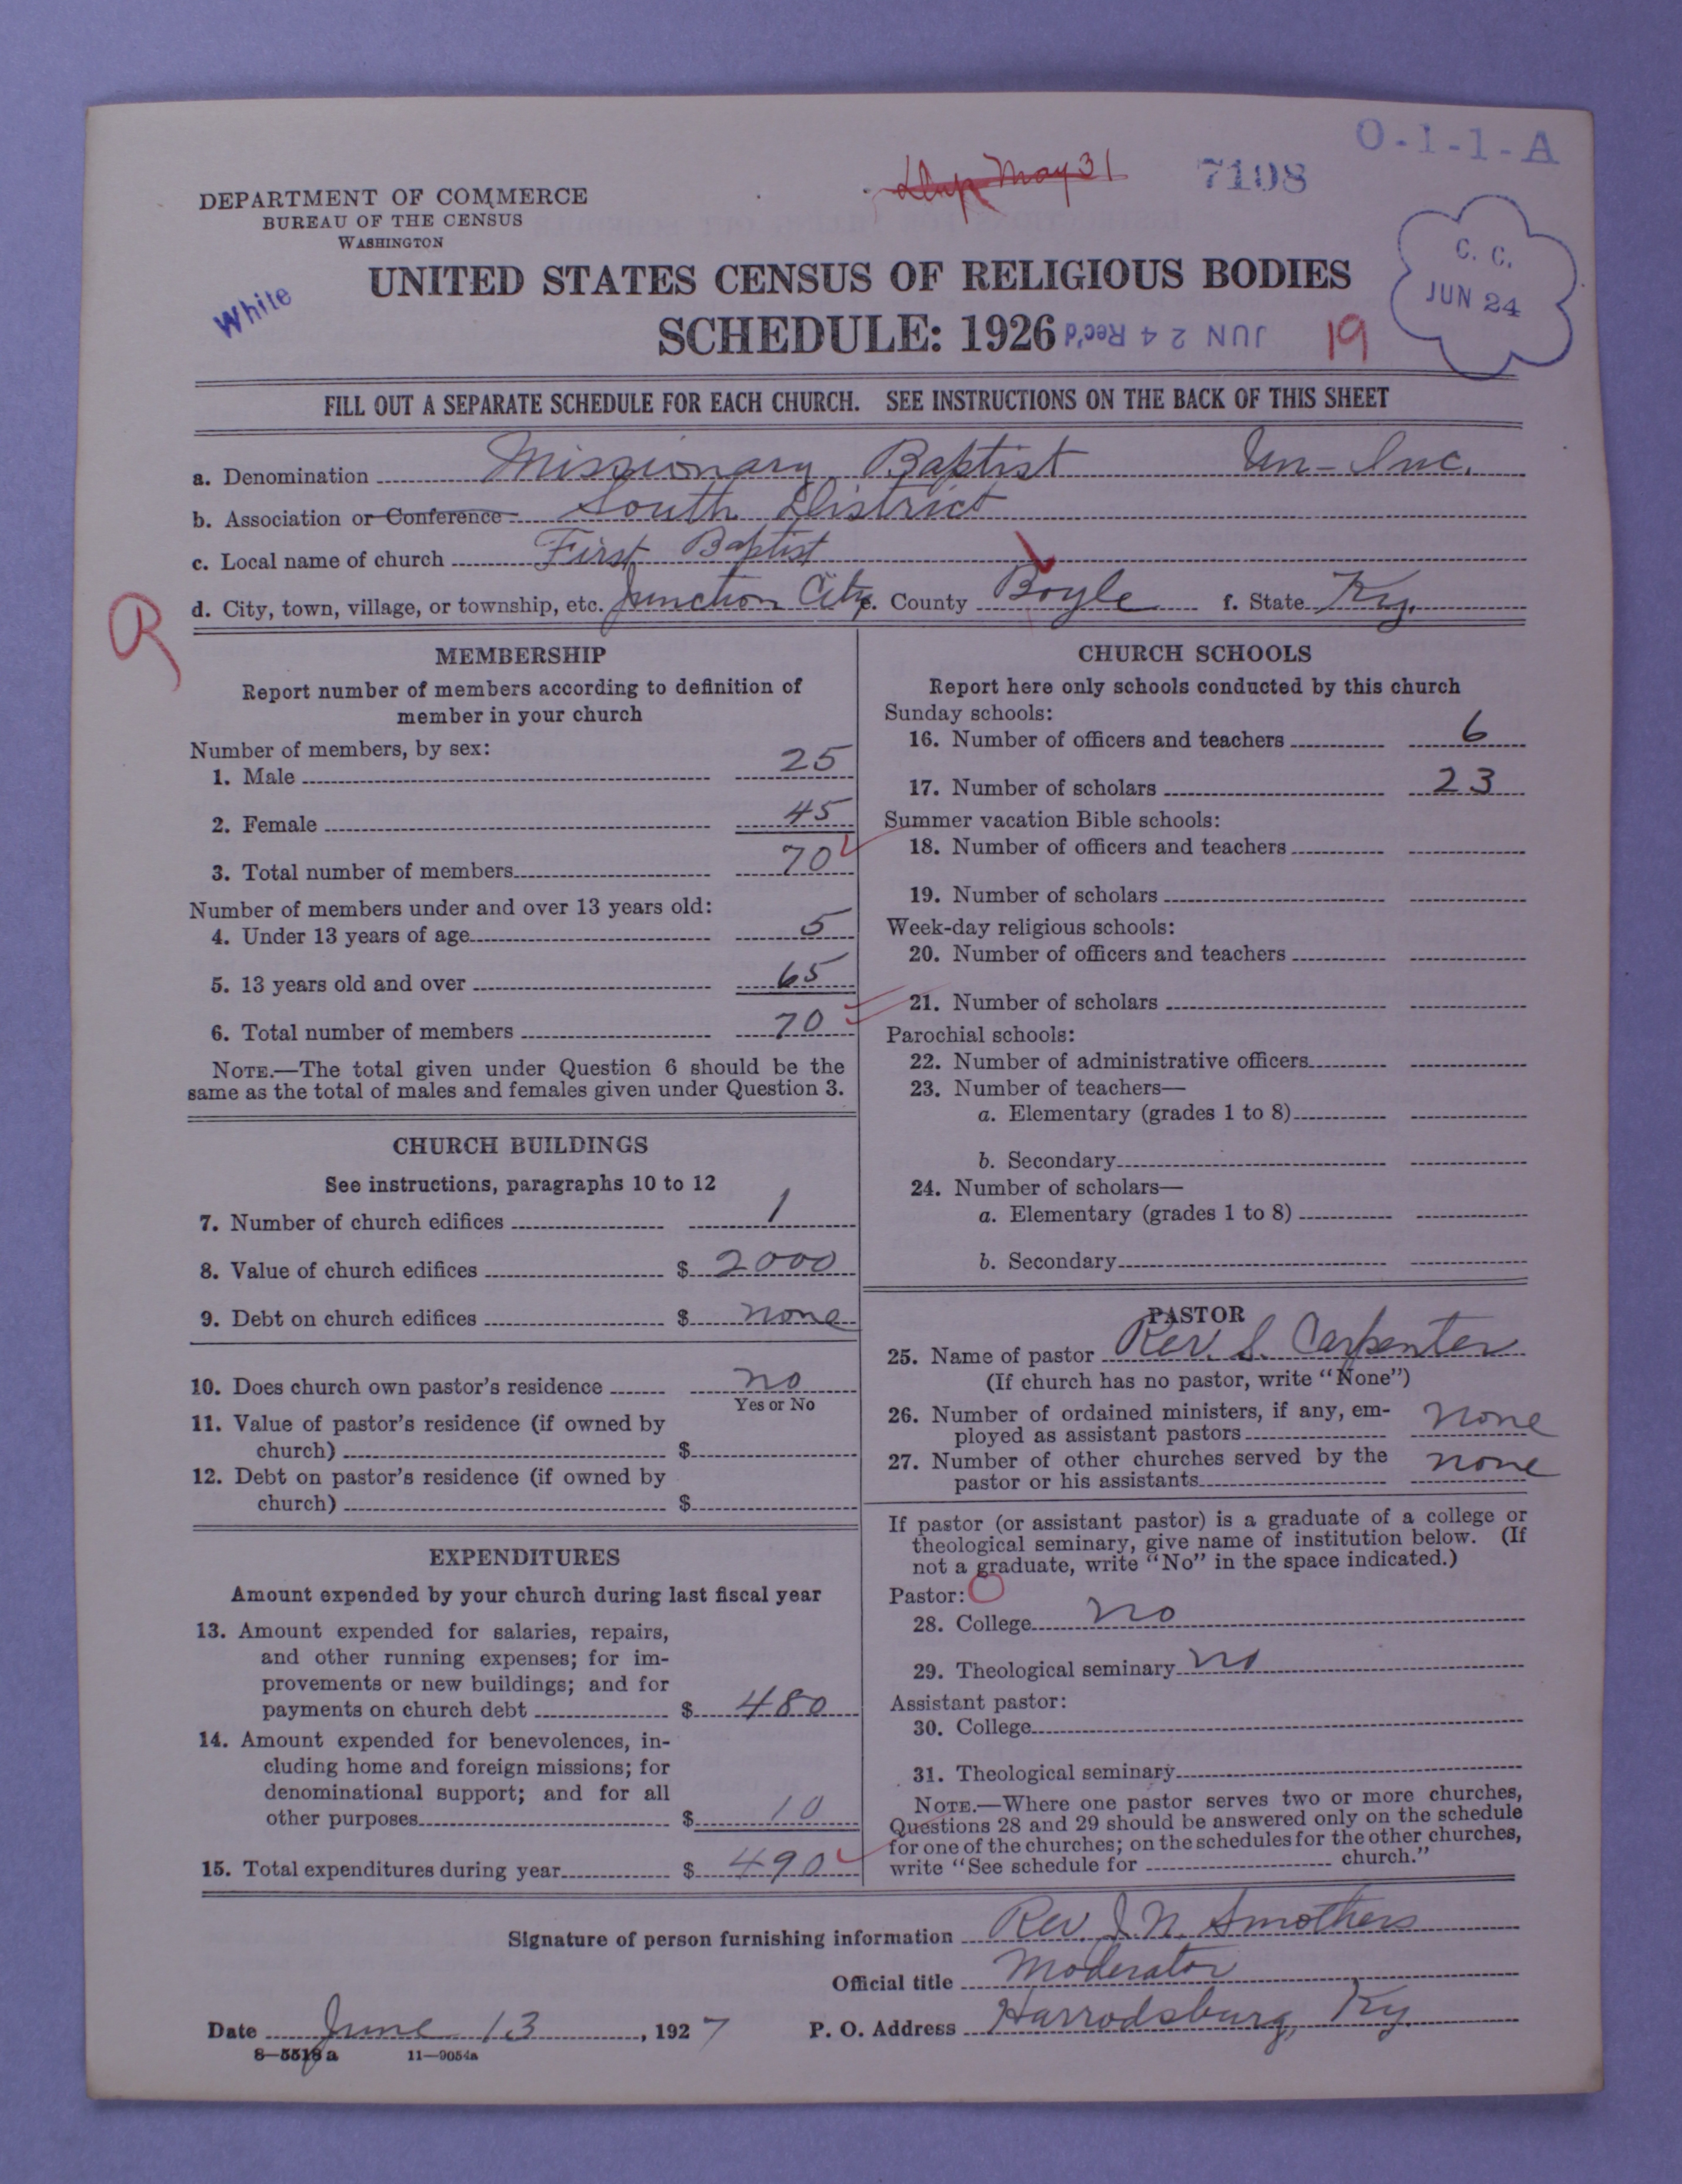 O-1-1-A
May 31
7108
DEPARTMENT OF COMMERCE
BUREAU OF THE CENSUS
WASHINGTON
C. C.
JUN 24
White
UNITED STATES CENSUS OF RELIGIOUS BODIES
SCHEDULE: 1926
JUN 24 Rec'd
19
FILL OUT A SEPARATE SCHEDULE FOR EACH CHURCH. SEE INSTRUCTIONS ON THE BACK OF THIS SHEET
a. Denomination Missionary Baptist Un-Inc.
b. Association or Conference South District
c. Local name of church First Baptist
d. City, town, village, or township, etc. Junction City e. County Boyle f. State Ky.
R
MEMBERSHIP
Report number of members according to definition of
member in your church
Number of members, by sex:
1. Male 25
2. Female 45
3. Total number of members 70
Number of members under and over 13 years old:
4. Under 13 years of age 5
5. 13 years old and over 65
6. Total number of members 70
NOTE.—The total given under Question 6 should be the
same as the total of males and females given under Question 3.
CHURCH BUILDINGS
See instructions, paragraphs 10 to 12
7. Number of church edifices 1
8. Value of church edifices $ 2000
9. Debt on church edifices $ none
10. Does church own pastor's residence no
Yes or No
11. Value of pastor's residence (if owned by
church) $
12. Debt on pastor's residence (if owned by
church) $
EXPENDITURES
Amount expended by your church during last fiscal year
13. Amount expended for salaries, repairs,
and other running expenses; for im-
provements or new buildings; and for
payments on church debt $ 480
14. Amount expended for benevolences, in-
cluding home and foreign missions; for
denominational support; and for all
other purposes $ 10
15. Total expenditures during year $ 490
CHURCH SCHOOLS
Report here only schools conducted by this church
Sunday schools:
16. Number of officers and teachers 6
17. Number of scholars 23
Summer vacation Bible schools:
18. Number of officers and teachers
19. Number of scholars
Week-day religious schools:
20. Number of officers and teachers
21. Number of scholars
Parochial schools:
22. Number of administrative officers
23. Number of teachers—
a. Elementary (grades 1 to 8)
b. Secondary
24. Number of scholars—
a. Elementary (grades 1 to 8)
b. Secondary
PASTOR
25. Name of pastor Rev. S. Carpenter
(If church has no pastor, write "None")
26. Number of ordained ministers, if any, em-
ployed as assistant pastors none
27. Number of other churches served by the
pastor or his assistants none
If pastor (or assistant pastor) is a graduate of a college or
theological seminary, give name of institution below. (If
not a graduate, write "No" in the space indicated.)
Pastor: O
28. College no
29. Theological seminary no
Assistant pastor:
30. College
31. Theological seminary
NOTE.—Where one pastor serves two or more churches,
Questions 28 and 29 should be answered only on the schedule
for one of the churches; on the schedules for the other churches,
write "See schedule for church."
Signature of person furnishing information Rev. J. N. Smothers
Official title Moderator
Date June 13, 1927 P. O. Address Harrodsburg, Ky.
8—5518a 11—9054a